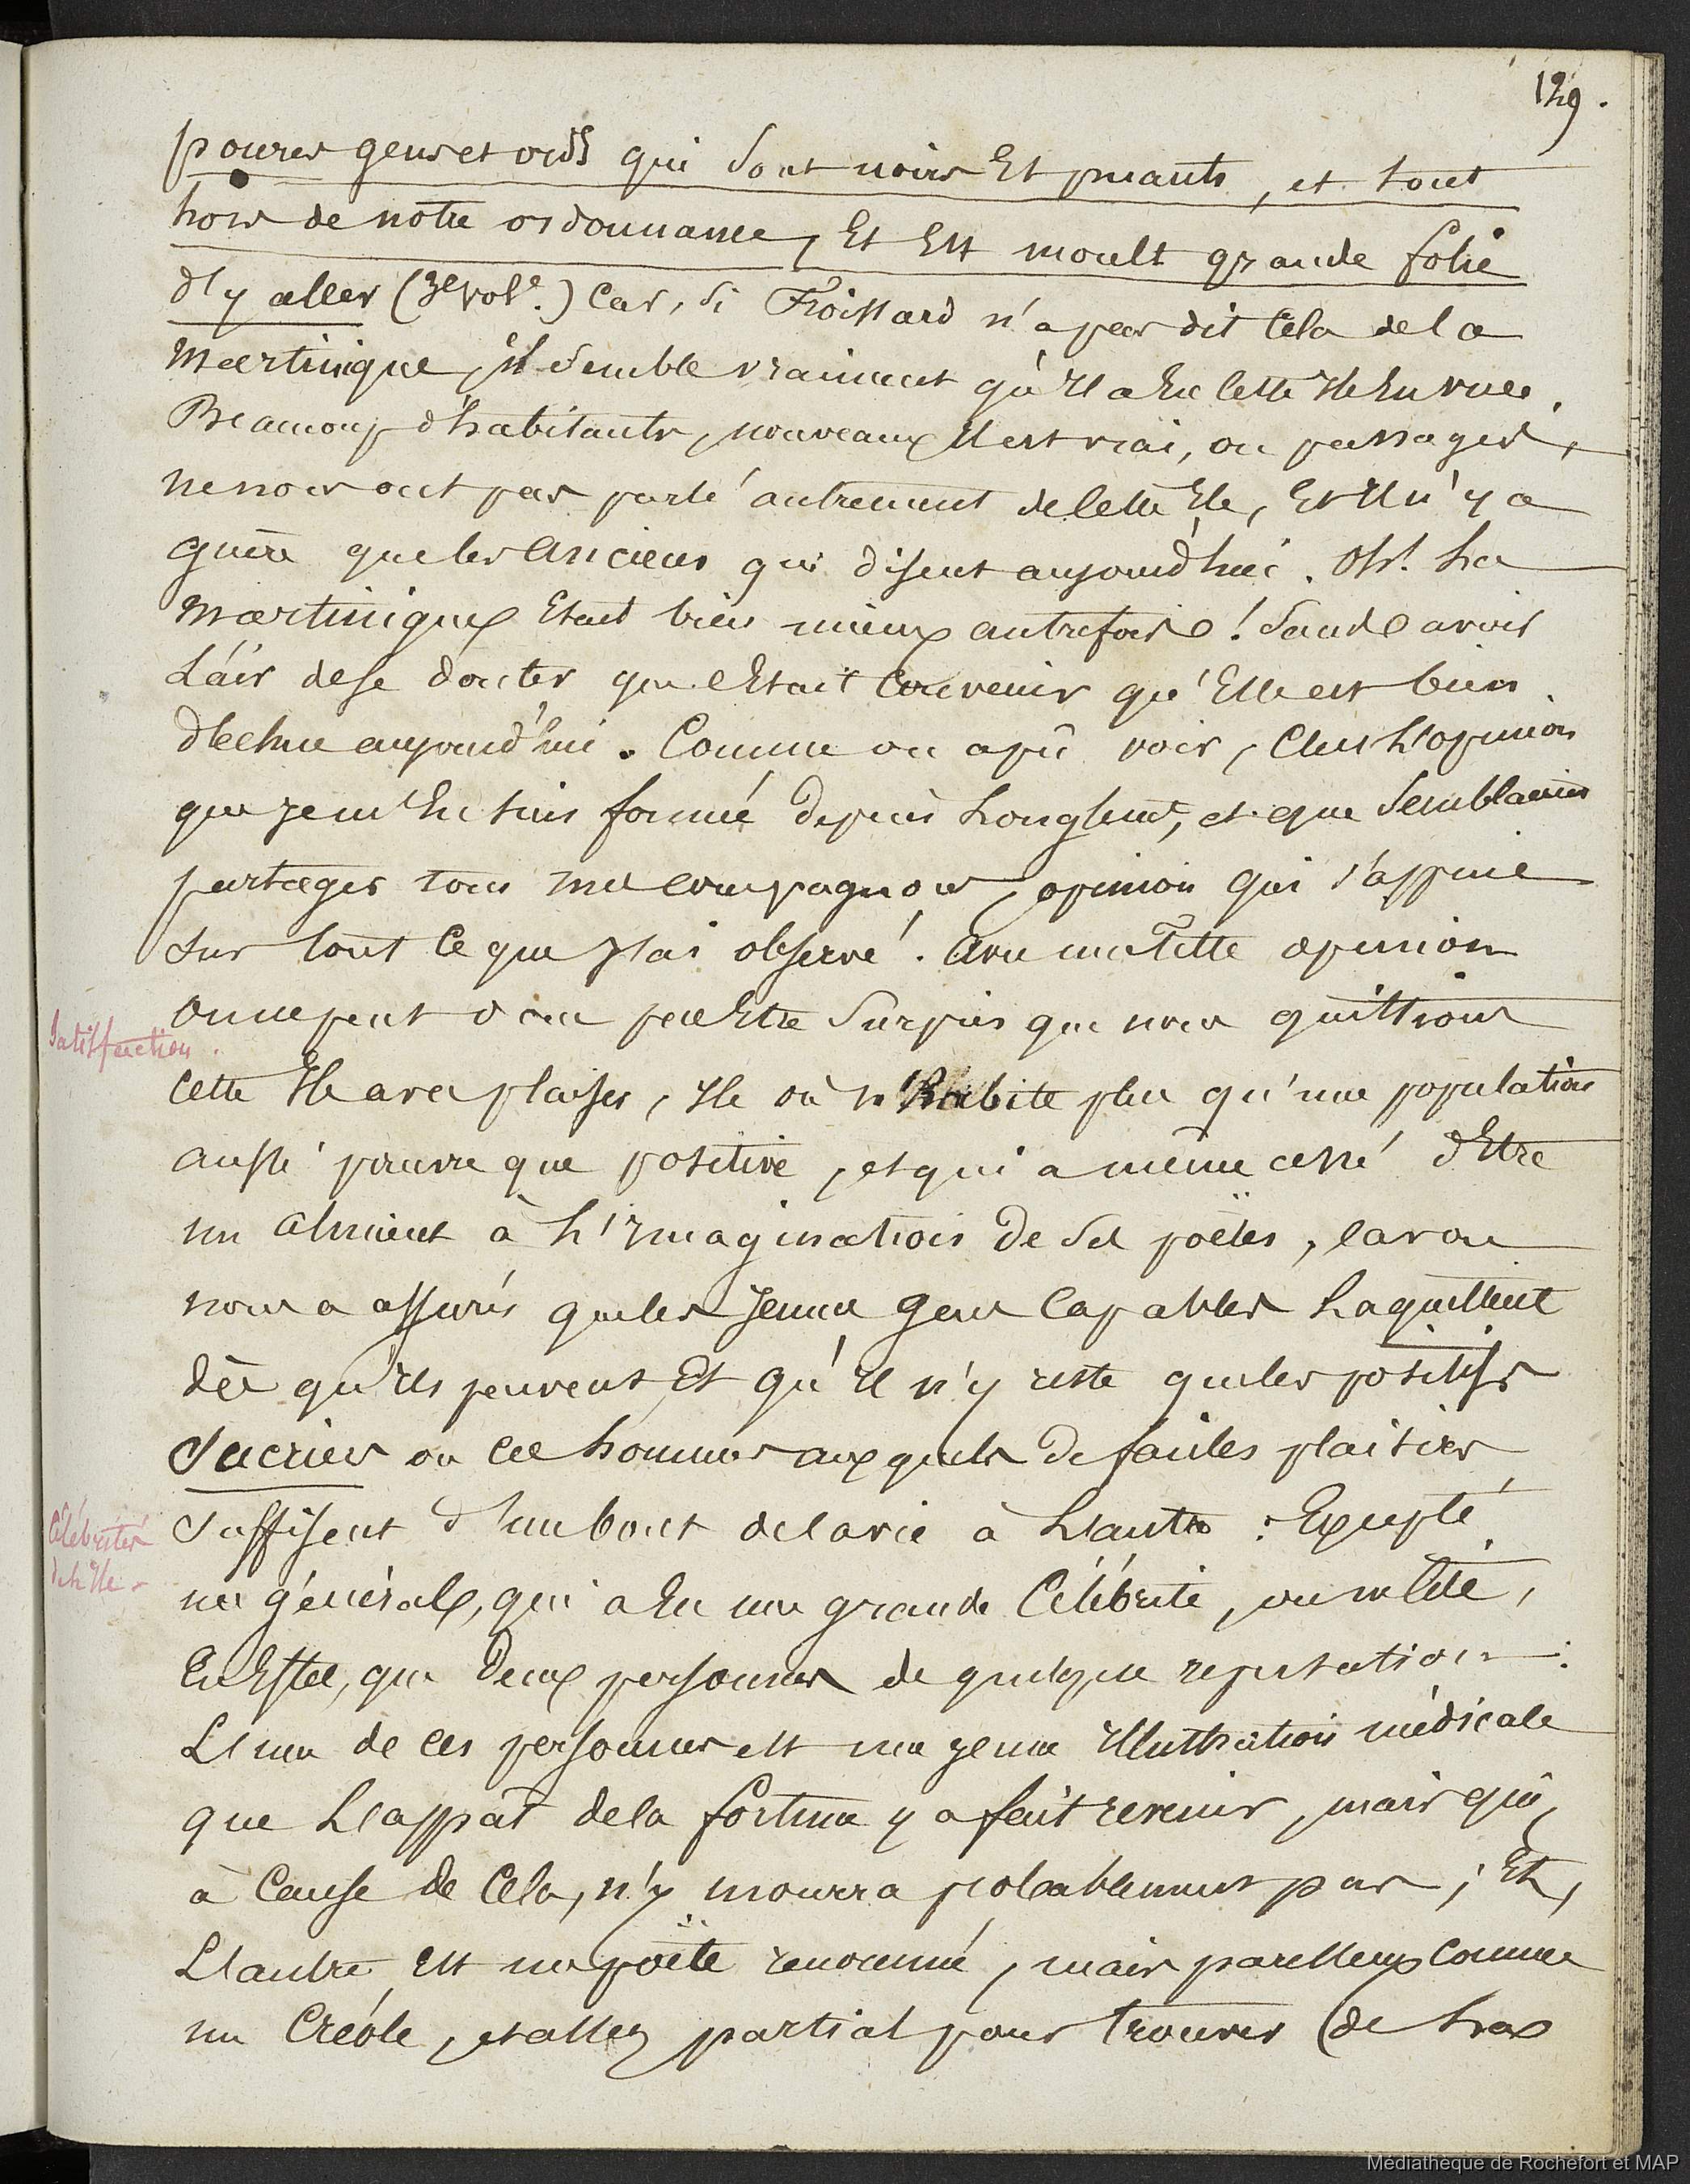 129.
poures gens et ords qui sont noirs Et puants, et tout
hors de notre ordonnance, Et Est moult grande folie
d'y aller (3e vole.) Car, si Froissard n'a pas dit cela de la
Martinique, il semble vraiment qu'Il a Eu cette Ile En vue.
Beaucoup d'habitants, nouveaux Il est vrai, ou passagers,
ne nous ont pas parlé autrement de cette Ile, Et Il n'y a
guère que les anciens qui disent aujourd'hui. Oh! La
Martinique Etait bien mieux autrefois! Sans avoir
L'air de se douter que c'Etait Convenir qu'Elle est bien
déchue aujourd'hui. Comme on a pû voir, C'est L'opinion
que je m'En suis formé depuis Longtems, et que Semblaient
partager tous mes compagnons, opinion qui s'appuie
sur tout Ce que J'ai observé. Avec une telle opinion
on ne peut donc pas Etre Surpris que nous quittions
Satisfaction.
Cette Ile avec plaisir, Ile où n'habite plus qu'une population
aussi pauvre que positive, et qui a même cessé d'Etre
un aliment à L'Imagination de ses poëtes, car on
nous a assurés que les Jeunes gens Capables La quittent
dès qu'Ils peuvent Et qu'Il n'y reste que les positifs
Sucriers ou ces hommes auxquels de faciles plaisirs
suffisent d'un bout de la vie à L'autre: Excepté
Célébrités
de L'Ile.
un général, qui a Eu une grande Célébrité, on ne Cite,
En Effet, que Deux personnes de quelque reputation:
L'une de ces personnes est une jeune Illustration médicale
que L'appât de la fortune y a fait revenir, mais qui,
à Cause de Cela, n'y mourra probablement pas; Et,
L'autre Est un poëte renommé, mais paresseux Comme
un Créole, et assez partial pour trouver (de Lax